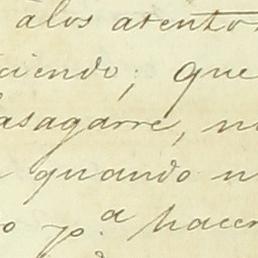 álos atento
ciendo; que
asagarre, n
quando n
o p.ª hacer